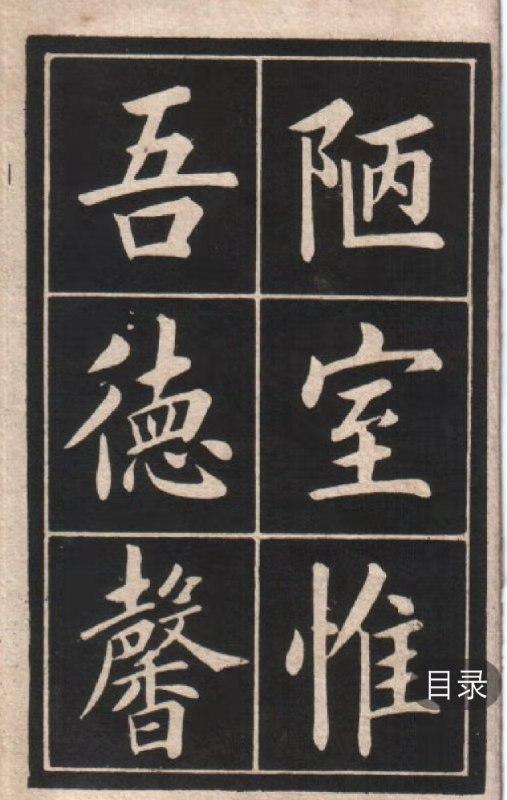 陋室惟
吾德馨
目录